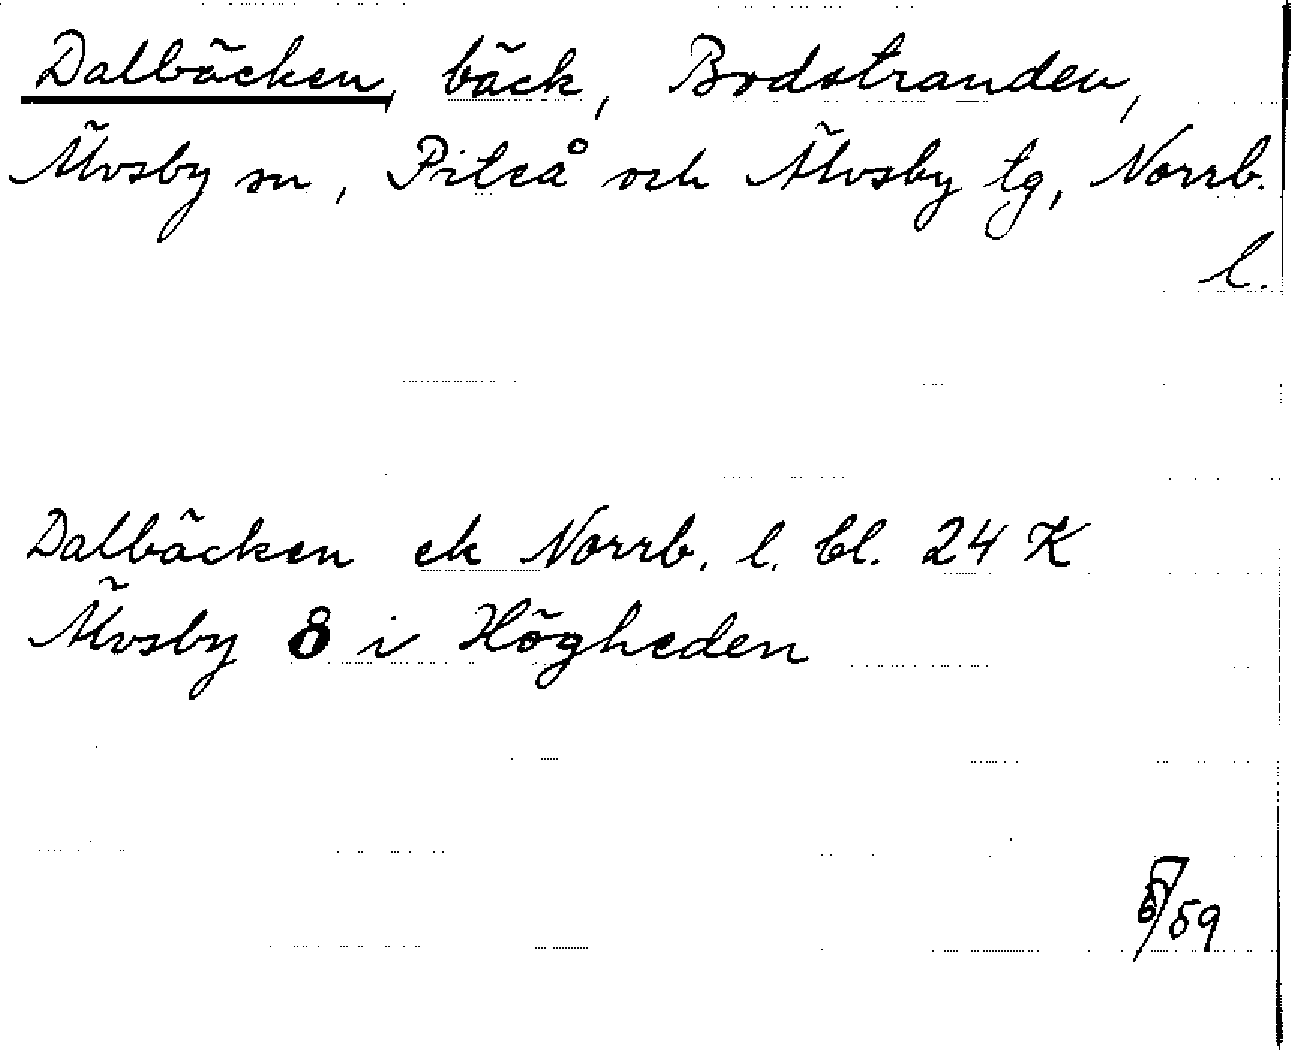 Dalbäcken, bäck, Bodstranden,
Älvsby sn, Piteå och Älvsby tg, Norrb.
l.
Dalbäcken ek Norrb. l. bl. 24 K
Älvsby 8 i Högheden
/59